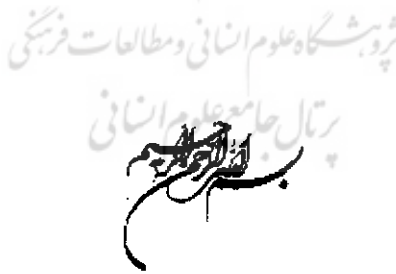 پژوهشگاه علوم انسانی و مطالعات فرهنگی
پرتال جامع علوم انسانی
بسم الله الرحمن الرحیم